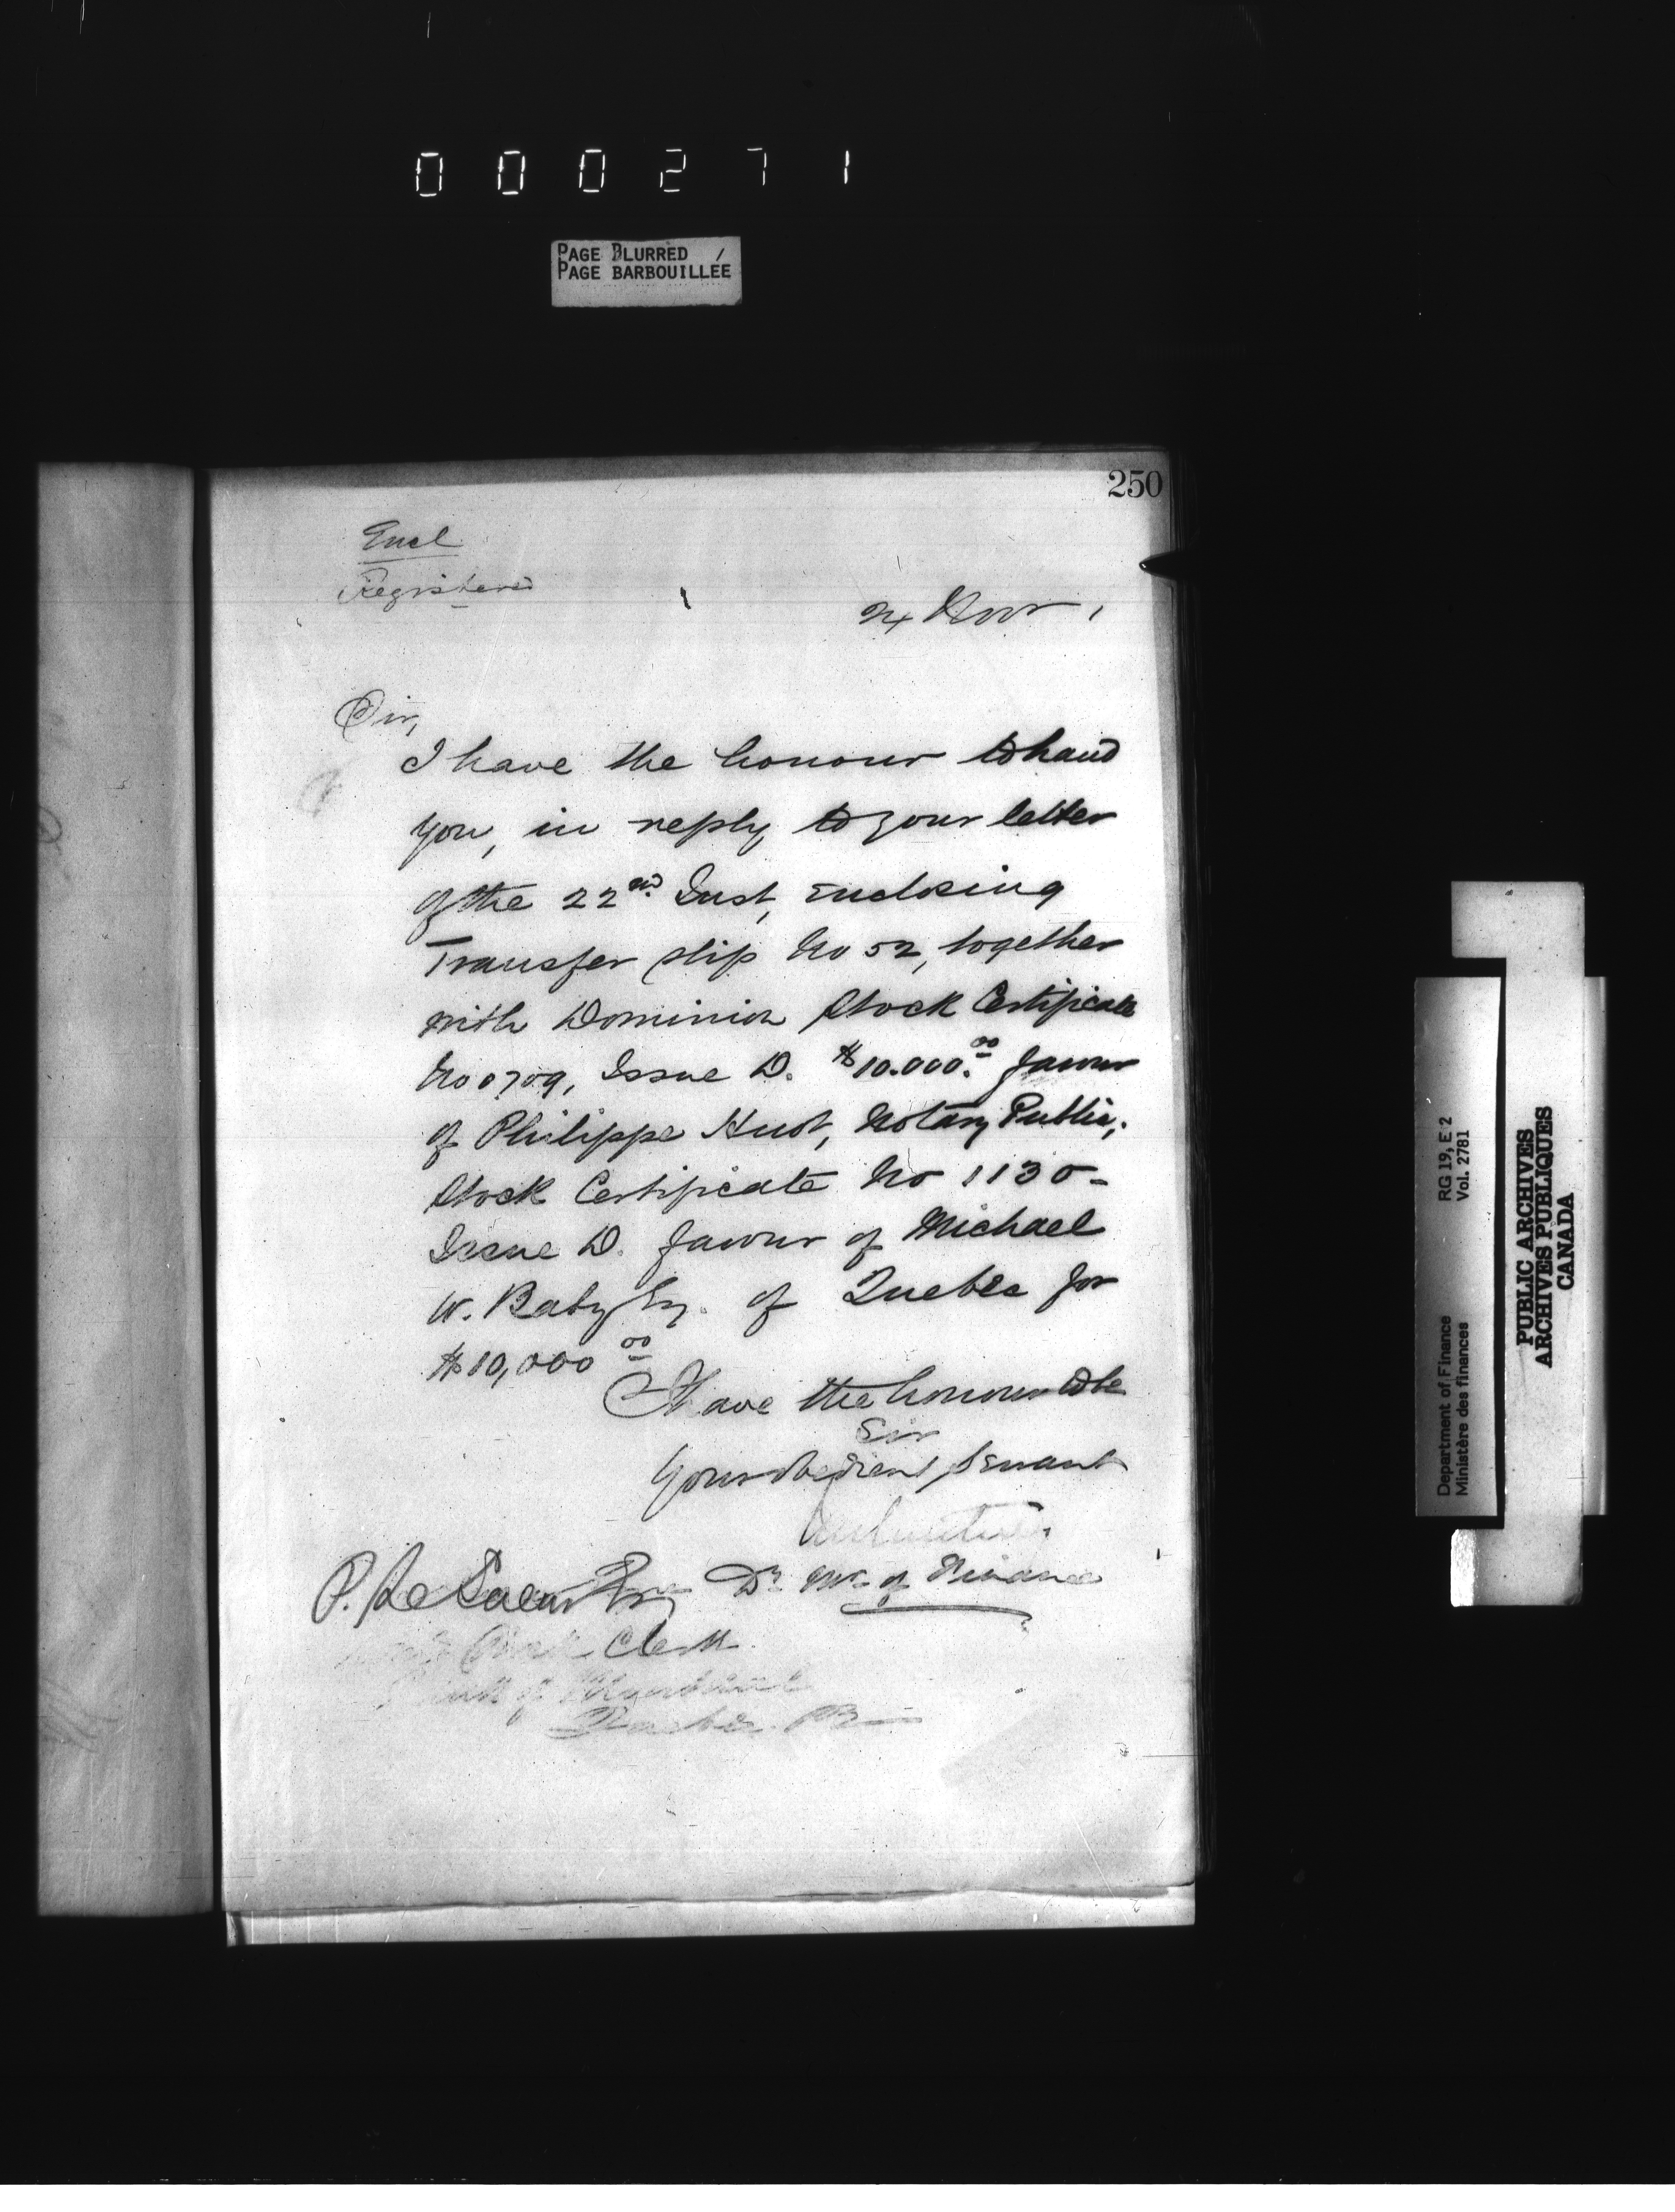 000271
PAGE BLURRED
PAGE BARBOUILLÉE
250
Encl
Registered
24 Novr
Sir,
I have the honour to hand
you, in reply to your letter
of the 22nd. Inst, enclosing
Transfer slip No 52, together
with Dominion Stock Certificate
No 0709, Issue D. $10.000.00 favour
of Philippe Huot, Notary Public,
Stock Certificate No 1130-
Issue D. favour of Michael
W. Baby Esq. of Quebec for
$10,000 00
I have the honour to be
Sir
Your obedient servant
Dy Mr of Finance
P. Le Sueur Esq
Clerk
Quebec. P
Department of Finance RG 19, E 2
Ministère des finances Vol. 2781
PUBLIC ARCHIVES
ARCHIVES PUBLIQUES
CANADA